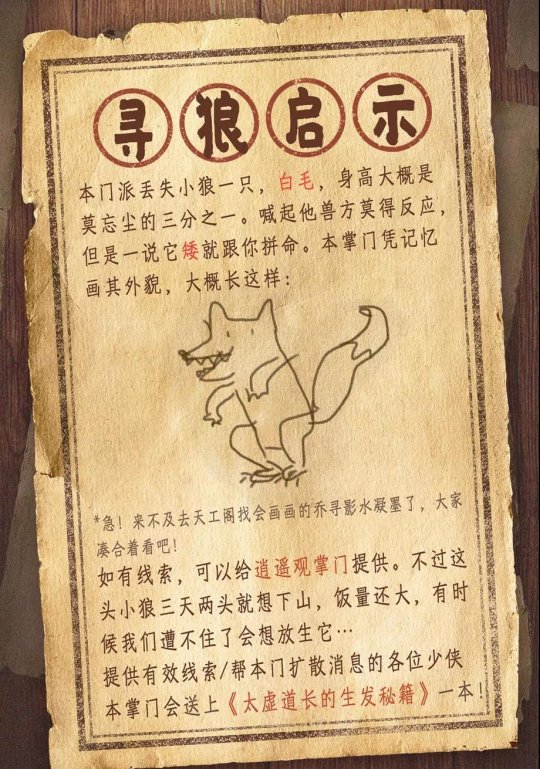 寻狼启示
本门派丢失小狼一只，白毛，身高大概是
莫忘尘的三分之一。喊起他兽方莫得反应，
但是一说它矮就跟你拼命。本掌门凭记忆
画其外貌，大概长这样：
*急！来不及去天工阁找会画画的乔寻影水凝墨了，大家
凑合着看吧！
如有线索，可以给逍遥观掌门提供。不过这
头小狼三天两头就想下山，饭量还大，有时
候我们遭不住了会想放生它…
提供有效线索/帮本门扩散消息的各位少侠
本掌门会送上《太虚道长的生发秘籍》一本！